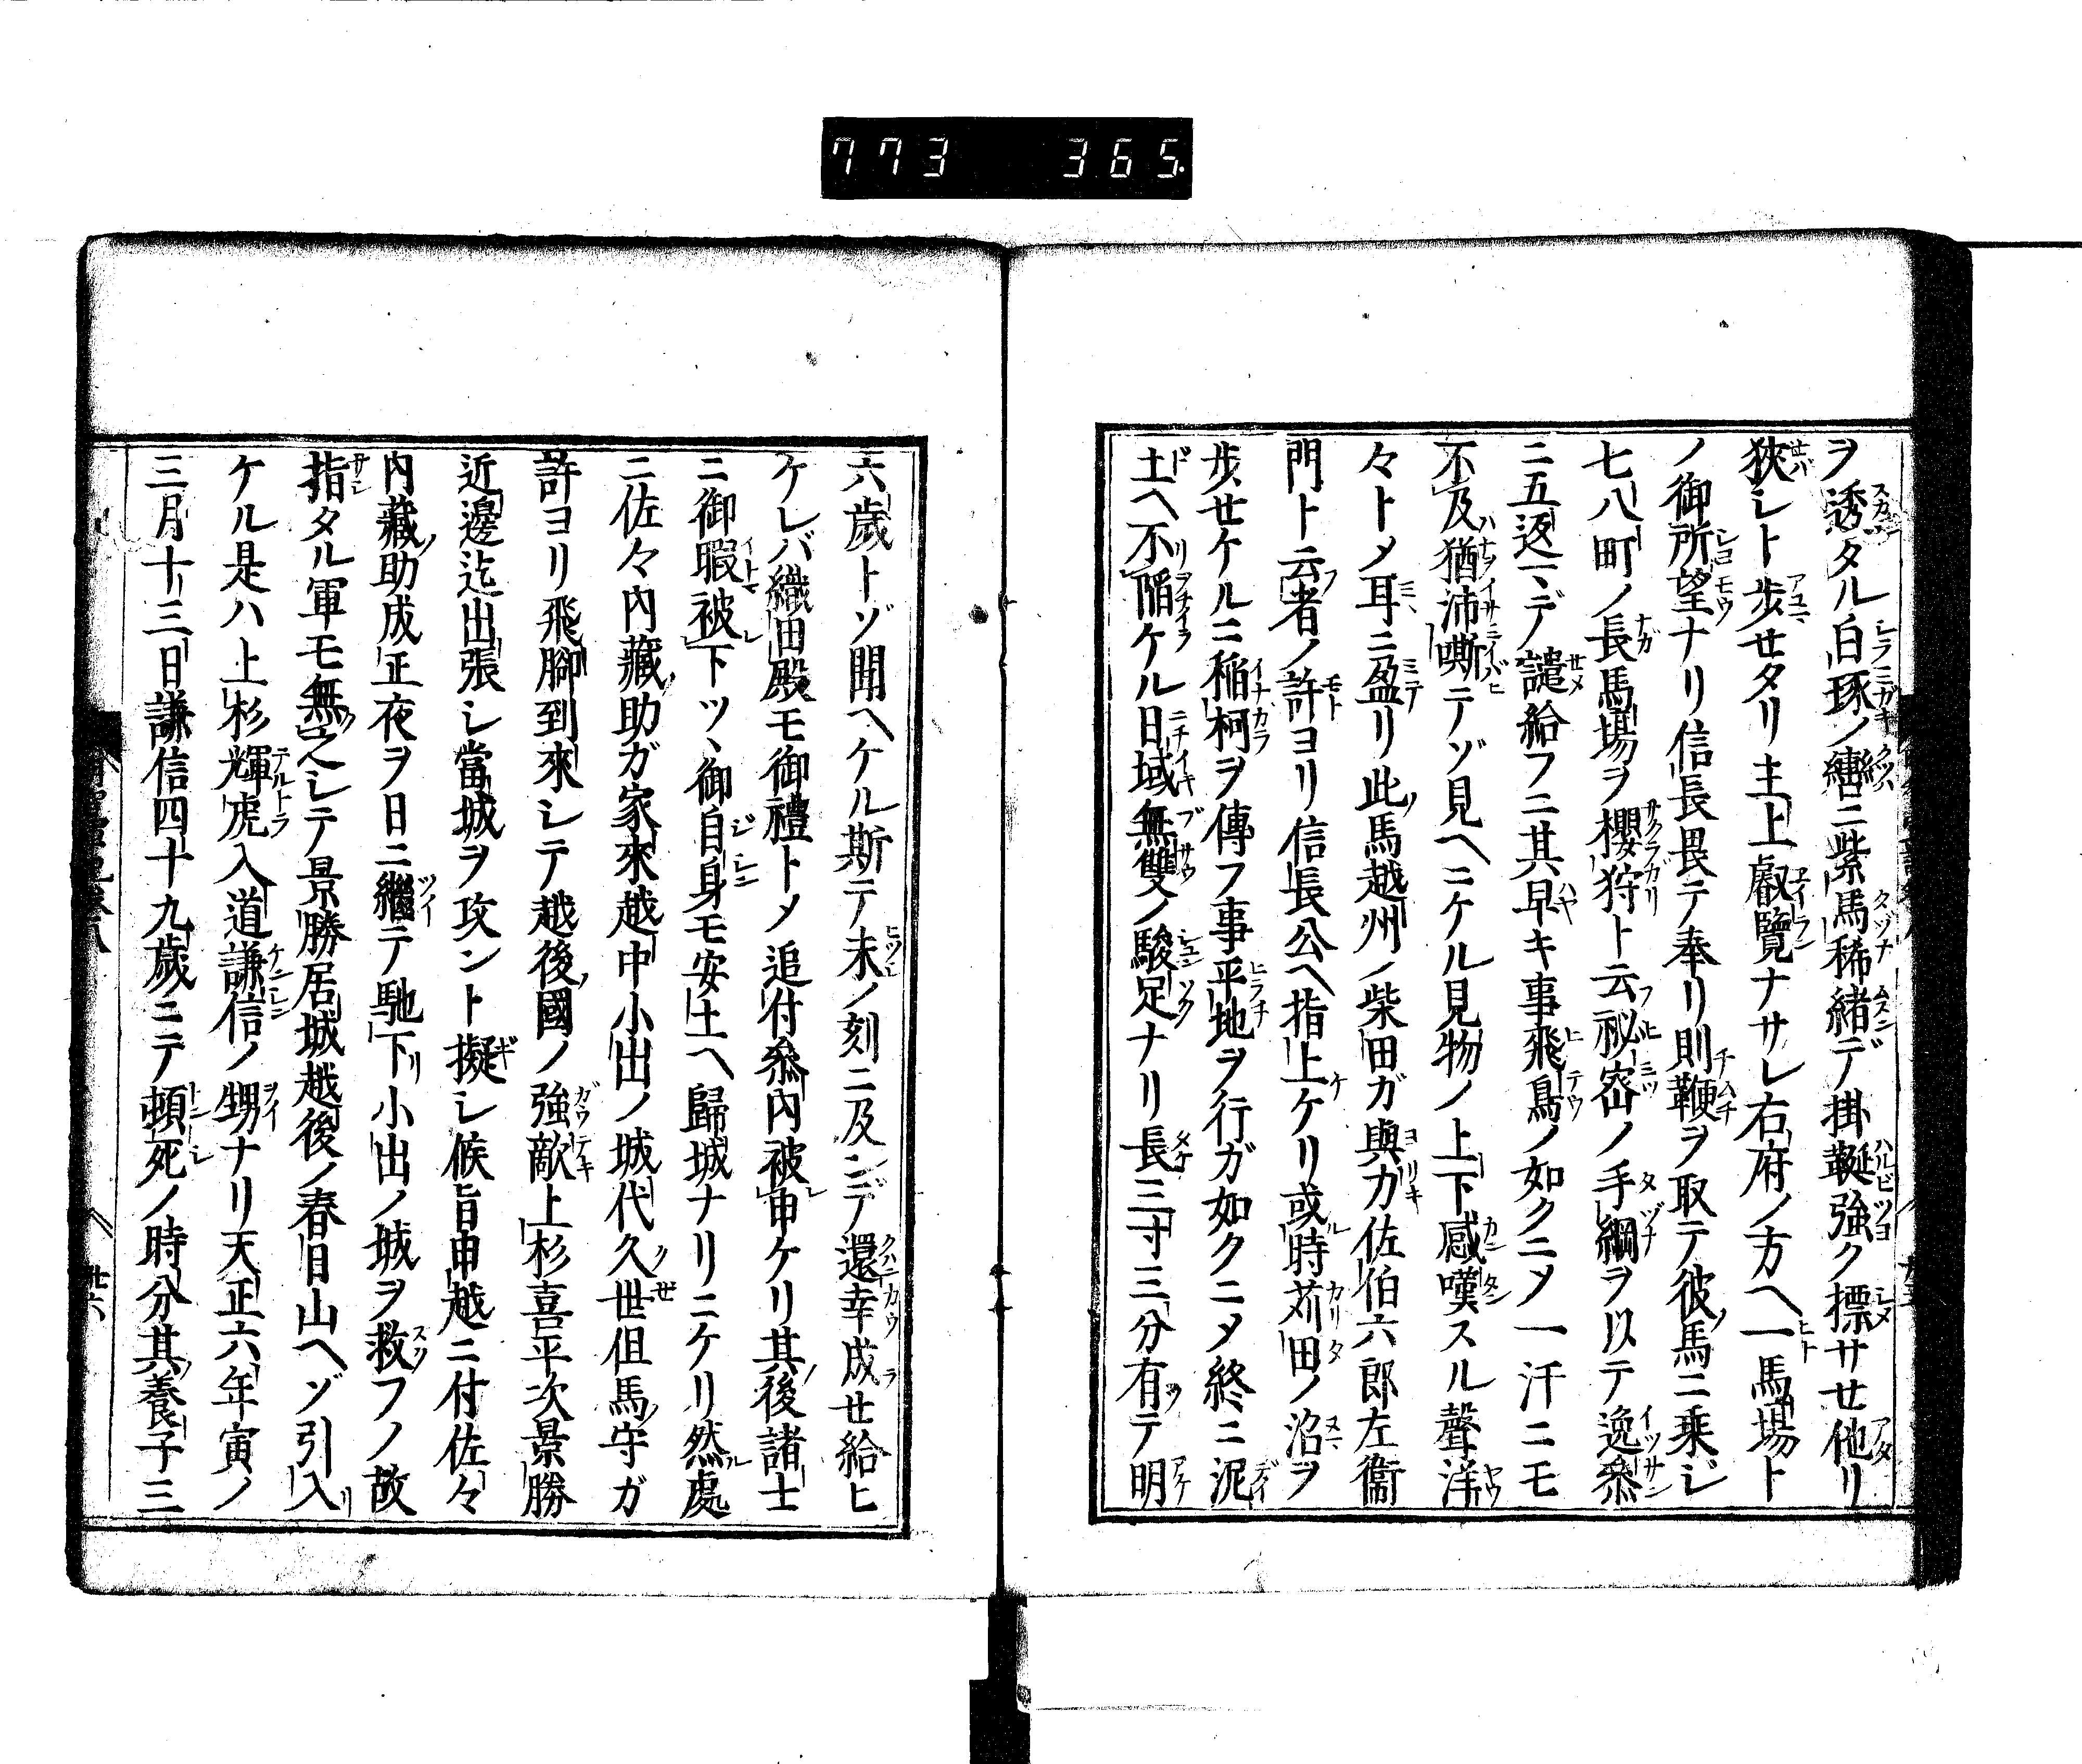 773 365
ヲ透タル白琢ノ轡ニ紫馬稀緒デ掛鞍強ク摽サセ他リ
狹シト歩セタリ主上叡覽ナサレ右府ノ方ヘ一馬場ト
ノ御所望ナリ信長畏テ奉リ則鞭ヲ取テ彼馬ニ乗ジ
七八町ノ長馬場ヲ櫻狩ト云祕宻ノ手綱ヲ以テ逸叅
ニ五返マデ譴給フニ其早キ事飛鳥ノ如クニメ一汗ニモ
不及猶沛嘶テゾ見ヘニケル見物ノ上下感嘆スル聲洋
々トメ耳ニ盈リ此馬越州ノ柴田ガ與力佐伯六郎左衞
門ト云者ノ許ヨリ信長公ヘ指上ケリ或時苅田ノ沼ヲ
歩セケルニ稲柯ヲ傳フ事平地ヲ行ガ如クニメ終ニ泥
土ヘ不陥ケル日域無雙ノ駿足ナリ長三寸三分有テ明
六歳トゾ聞ヘケル斯テ未ノ刻ニ及ンデ還幸成セ給ヒ
ケレバ織田殿モ御禮トメ追付叅内被申ケリ其後諸士
ニ御暇被下ツヽ御自身モ安土ヘ歸城ナリニケリ然處
ニ佐々内藏助ガ家來越中小出ノ城代久世但馬守ガ
許ヨリ飛脚到來シテ越後國ノ強敵上杉喜平次景勝
近邊迄出張シ當城ヲ攻ント擬シ候旨申越ニ付佐々
内藏助成正夜ヲ日ニ繼テ馳下小出ノ城ヲ救フノ故
指タル軍モ無之シテ景勝居城越後ノ春日山ヘゾ引入
ケル是ハ上杉輝虎入道謙信ノ甥ナリ天正六年寅ノ
三月十三日謙信四十九歳ニテ頓死ノ時分其養子三